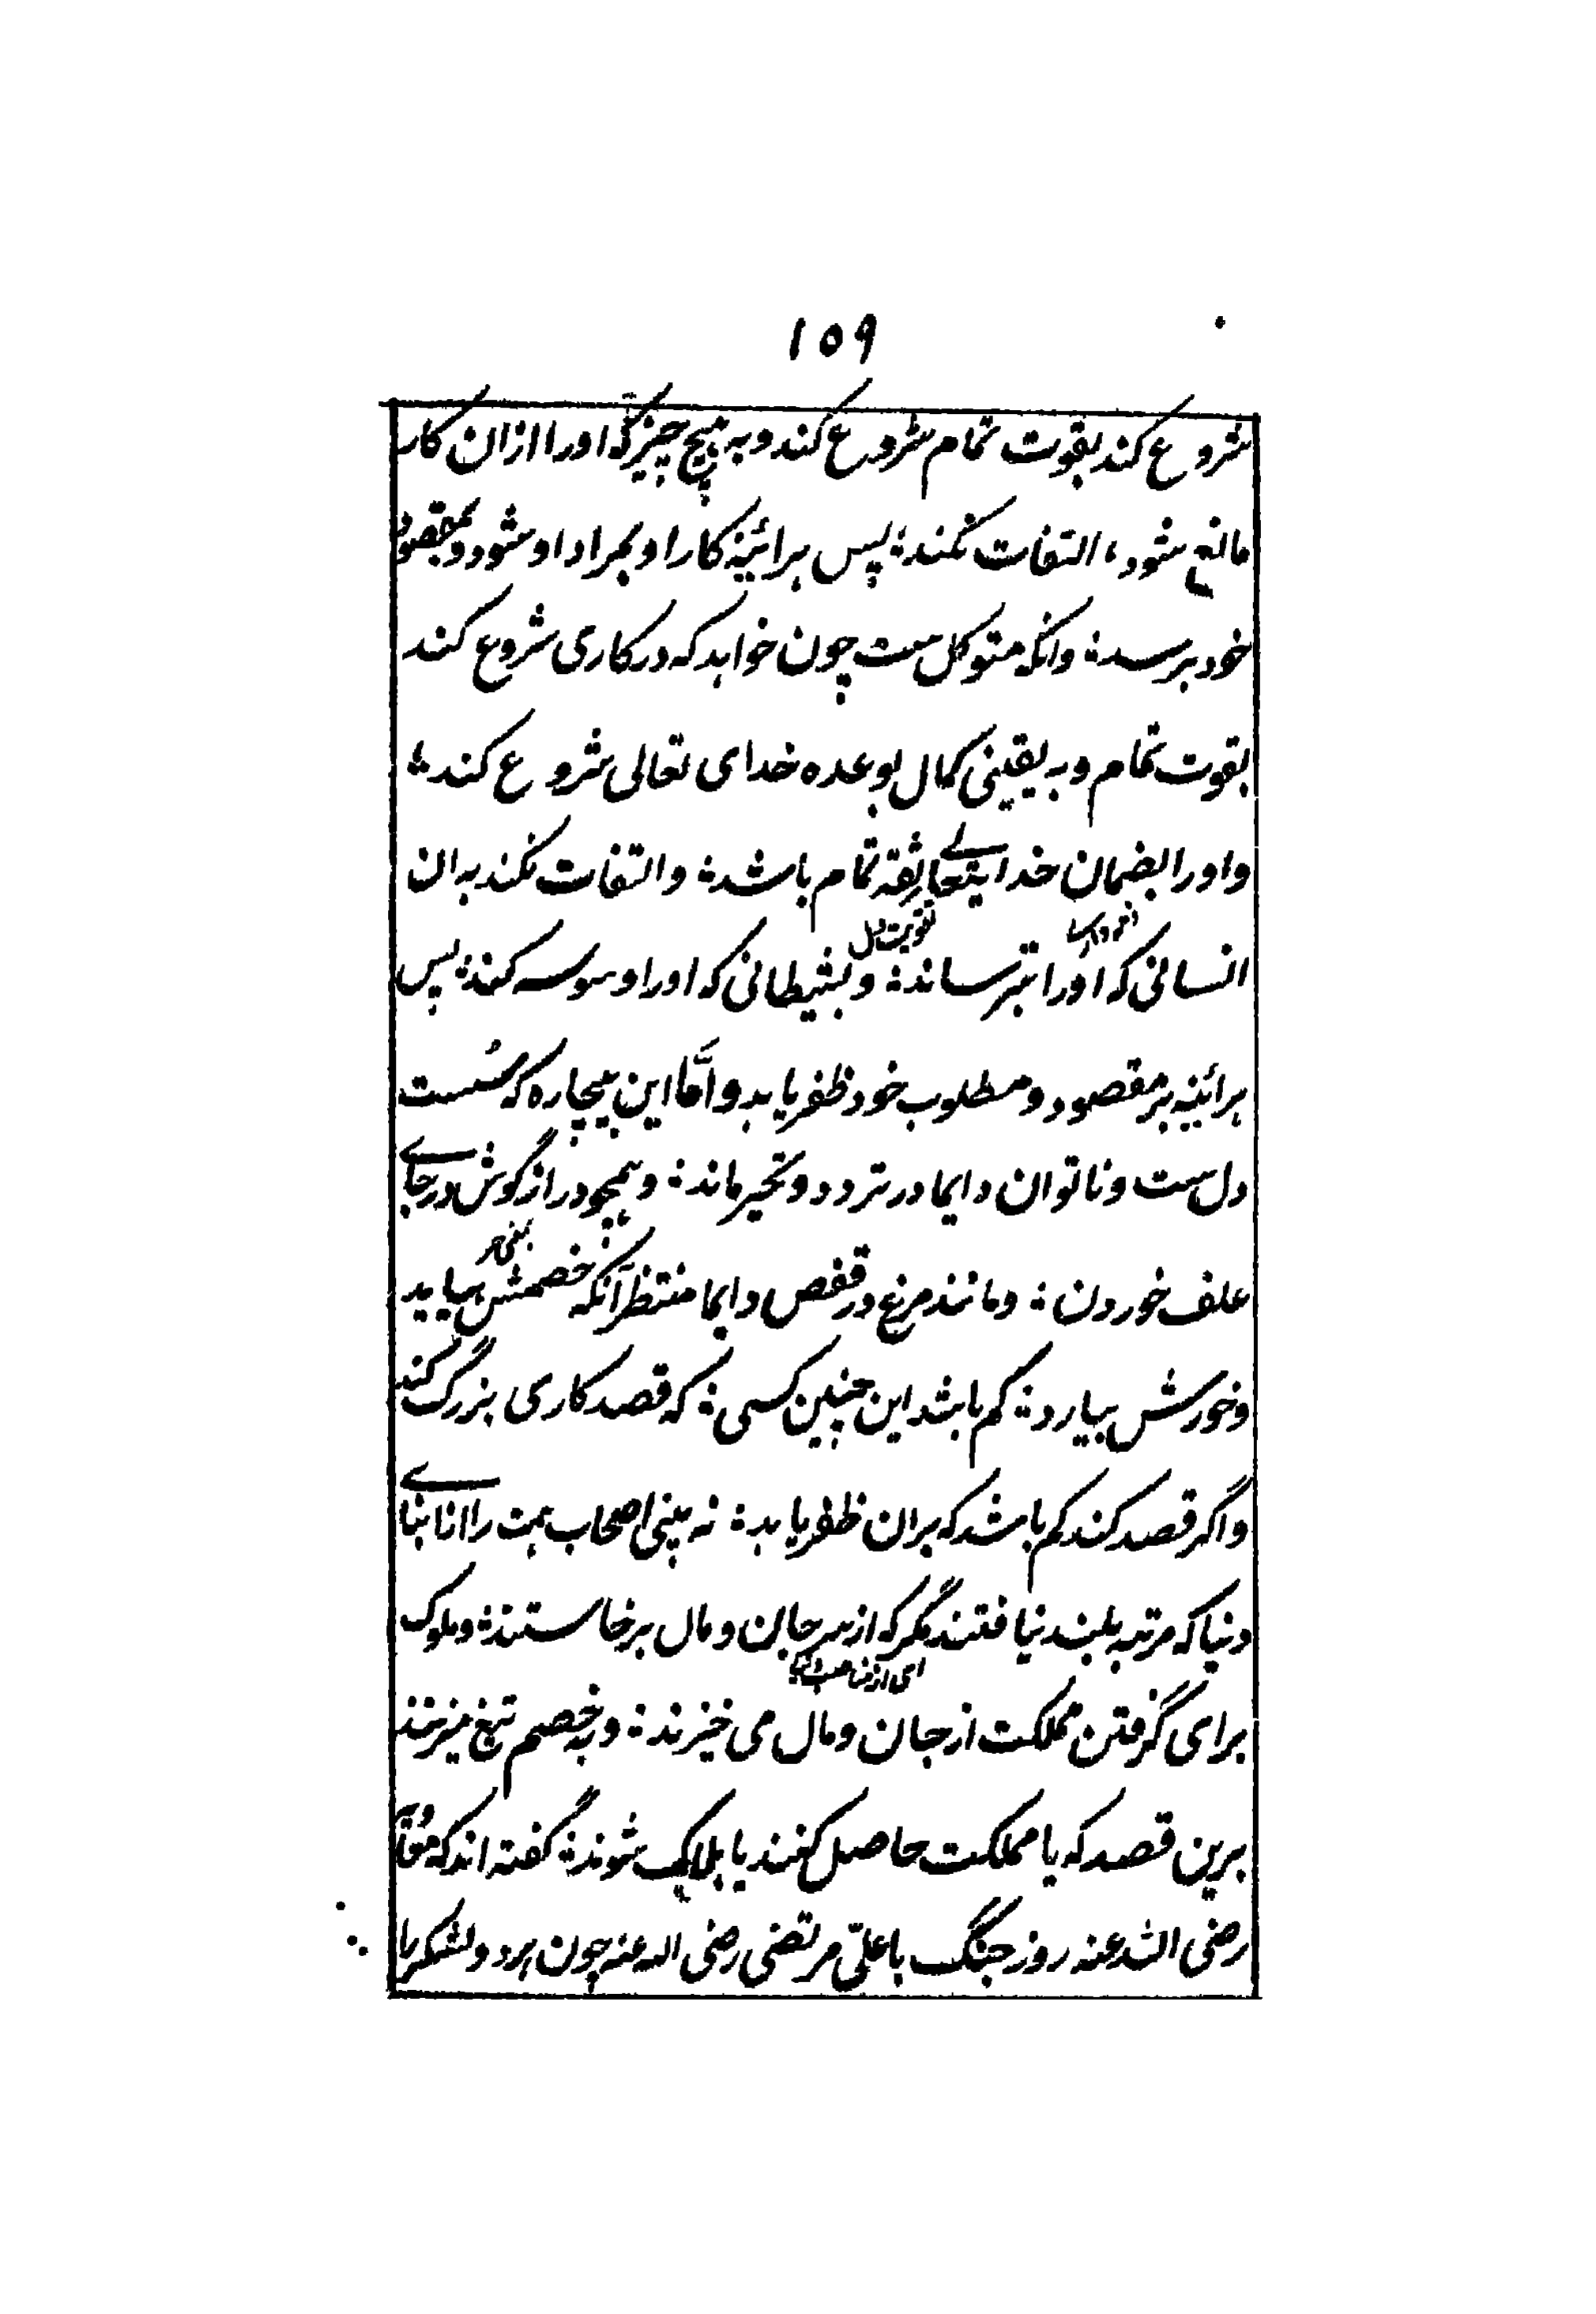 ۱۵۹
شروع کند بقوت تمام شروع کند و به هیچ چیزیکه اورا ازان کار
مانع شود، التفات نکند؛ پس هرائینه کار او بمراد او شود و بمقصود
خود برسد؛ وانکه متوکل ست چون خواهد که در کاری شروع کند
بقوت تمام و به یقینی کمال بوعده خدای تعالی شروع کند؛
و اورا بضمان خدایتعالے ثقه تمام باشد؛ و التفات نکند به ان
تقویت دل
انسانی که اورا بترساند؛ و بشیطانی که اورا وسوسه کند؛ پس
هرائینه بر مقصود و مطلوب خود ظفر یابد و امّا این بیچاره که سُست
دل ست و ناتوان دایما در تردد و تحیر ماند؛ و همچو دراز گوش در جاے
علف خوردن؛ و مانند مرغ در قفص دایما منتظر آنکه خصمش بیاید
و خورش بیارد؛ کم باشد این چنین کسی؛ که قصد کاری بزرگ کند
و اگر قصد کند کم باشد که بران ظفر یابد؛ نه بینی اصحاب همت را از ابناے
دنیا که مرتبه بلند نیافتند مگر که از سر جان و مال برخاستند؛ و ملوک
برای گرفتن مملکت از جان و مال می خیزند؛ و به خصم تیغ میزنند
برین قصد که یا مملکت حاصل کنند یا هلاک شوند؛ گفته اند که معٰویه
رضی الله عنه روز جنگ با علیّ مرتضی رضی الله عنه چون هر دو لشکر با